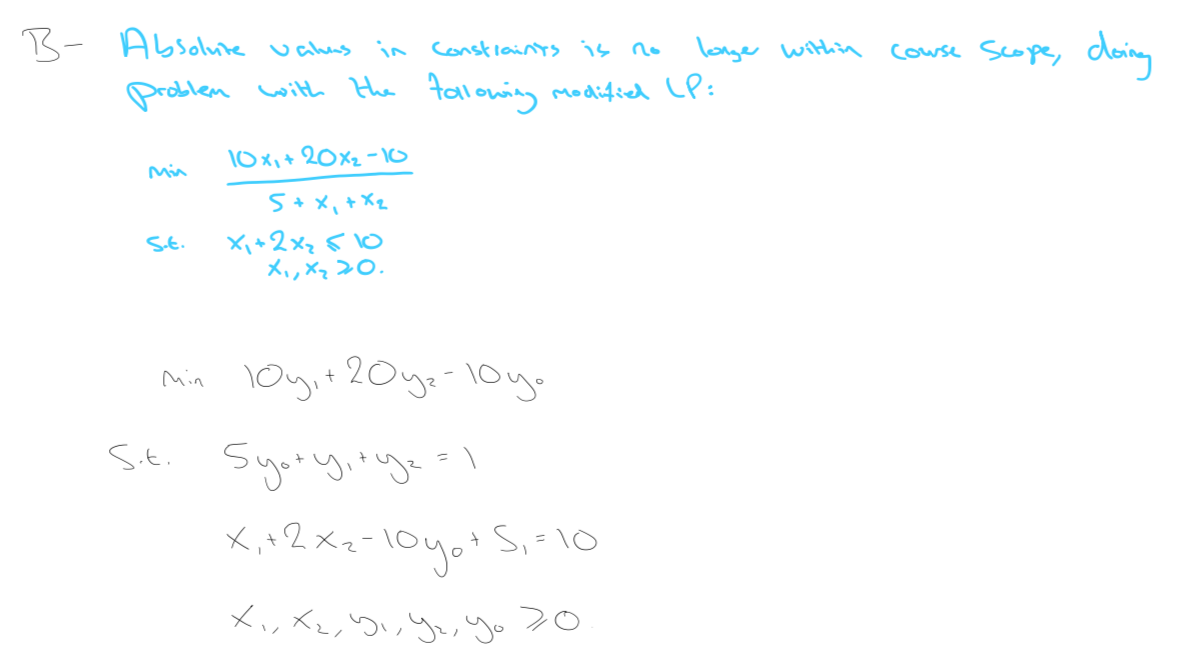 B- Absolute values in constraints is no longer within course scope, doing
problem with the following modified LP:
min 10x₁ + 20x₂ - 10
5 + x₁ + x₂
s.t. x₁ + 2x₂ ≤ 10
x₁, x₂ ≥ 0.
min 10y₁ + 20y₂ - 10y₀
s.t. 5y₀ + y₁ + y₂ = 1
x₁ + 2x₂ - 10y₀ + S₁ = 10
x₁, x₂, y₁, y₂, y₀ ≥ 0.